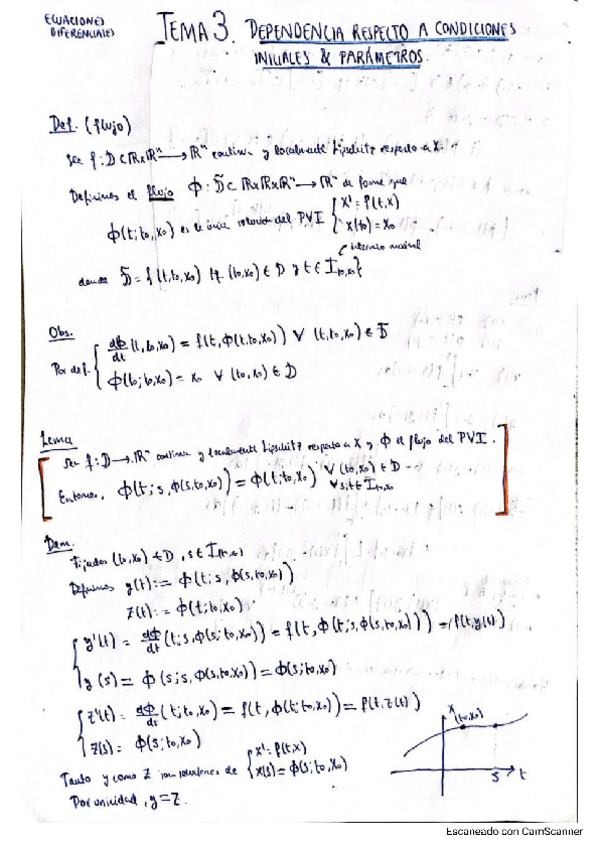 ECUACIONES
DIFERENCIALES
TEMA 3. DEPENDENCIA RESPECTO A CONDICIONES
INICIALES & PARÁMETROS.
Def. (flujo)
Sea f: D ⊂ ℝxℝⁿ → ℝⁿ continua y localmente Lipschitz respecto a x.
Definimos el flujo Φ: D̃ ⊂ ℝxℝxℝⁿ → ℝⁿ de forma que
Φ(t; t₀, x₀) es la única solución del PVI { x' = f(t,x)
x(t₀) = x₀
intervalo maximal
donde D̃ = {(t, t₀, x₀) tq. (t₀, x₀) ∈ D y t ∈ I_{t₀,x₀}}
Obs.
Por def. { dΦ/dt (t, t₀, x₀) = f(t, Φ(t, t₀, x₀)) ∀ (t, t₀, x₀) ∈ D̃
Φ(t₀; t₀, x₀) = x₀ ∀ (t₀, x₀) ∈ D
Lema
Sea f: D → ℝⁿ continua y localmente Lipschitz respecto a x y Φ el flujo del PVI.
Entonces, Φ(t; s, Φ(s, t₀, x₀)) = Φ(t; t₀, x₀) ∀ (t₀, x₀) ∈ D
∀ s, t ∈ I_{t₀,x₀}
Dem.
Fijados (t₀, x₀) ∈ D, s ∈ I_{(t₀,x₀)}
Definimos y(t) := Φ(t; s, Φ(s, t₀, x₀))
z(t) := Φ(t; t₀, x₀)
{ y'(t) = dΦ/dt (t; s, Φ(s; t₀, x₀)) = f(t, Φ(t; s, Φ(s, t₀, x₀))) = f(t, y(t))
y(s) = Φ(s; s, Φ(s, t₀, x₀)) = Φ(s; t₀, x₀)
{ z'(t) = dΦ/dt (t; t₀, x₀) = f(t, Φ(t; t₀, x₀)) = f(t, z(t))
z(s) = Φ(s; t₀, x₀)
Tanto y como z son soluciones de { x' = f(t,x)
x(s) = Φ(s; t₀, x₀)
Por unicidad, y = z.
x
(t₀, x₀)
s
t
Escaneado con CamScanner